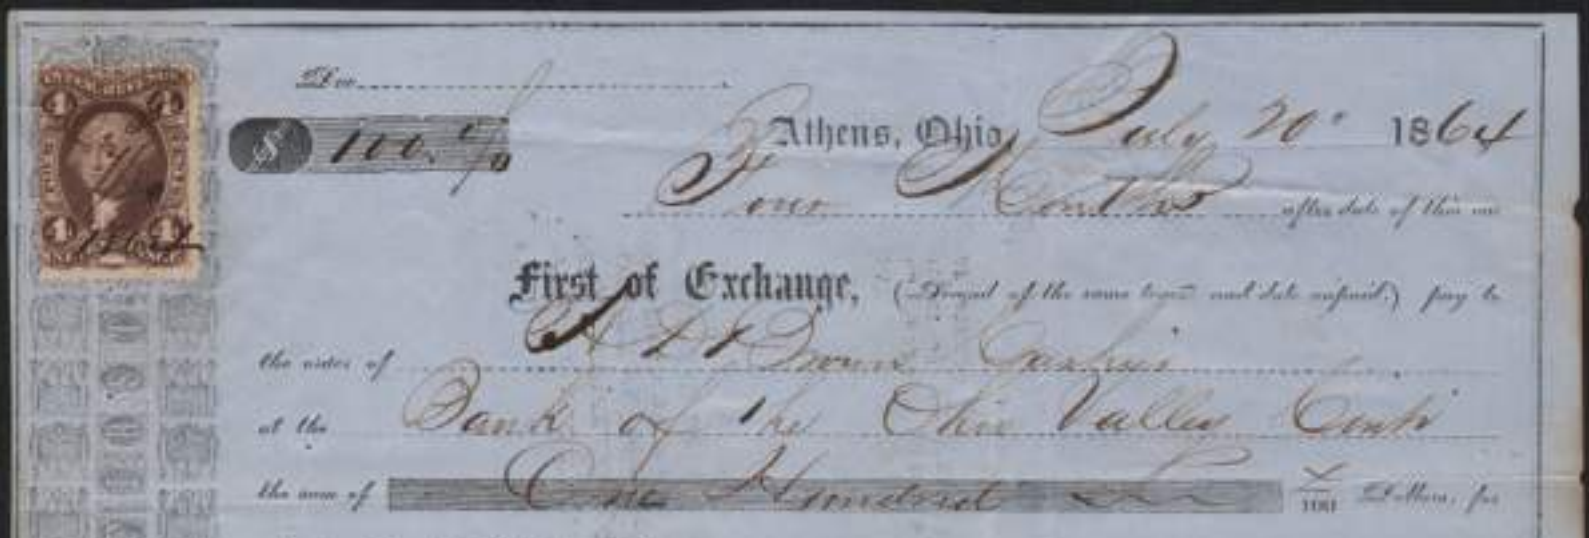 Due
$ 100. 0/0
Athens, Ohio, July 20" 1864
Four Months after date of this our
First of Exchange, (Second of the same tenor and date unpaid.) pay to
the order of Brown Cashier
at the Bank of the Ohio Valley Cinti
the sum of One Hundred /100 Dollars, for
4 4
4 4
1864